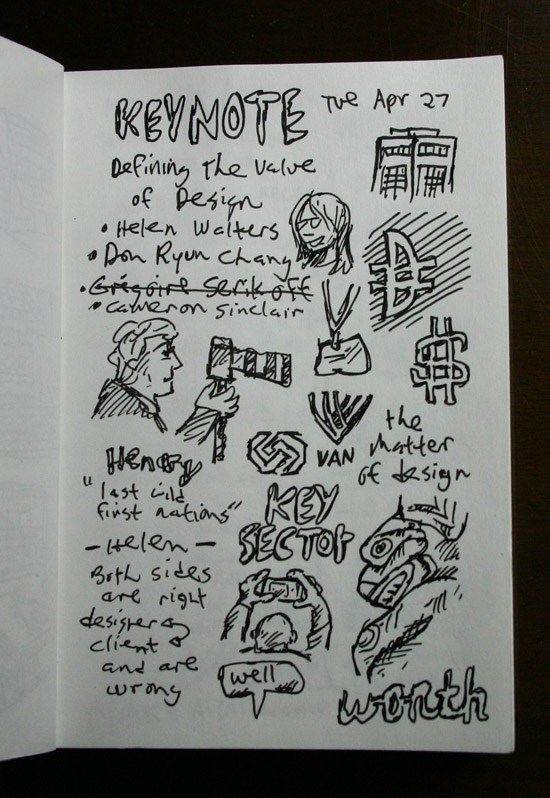 KEYNOTE Tue Apr 27
Defining the value
of Design
• Helen Walters
• Don Ryun Chang
• Grégoire Serikoff
• Cameron Sinclair
VAN
the
matter
of design
Henry
"last
first nations"
KEY
SECTOR
- Helen -
Both sides
are right
designer
client
and are
wrong
well
worth